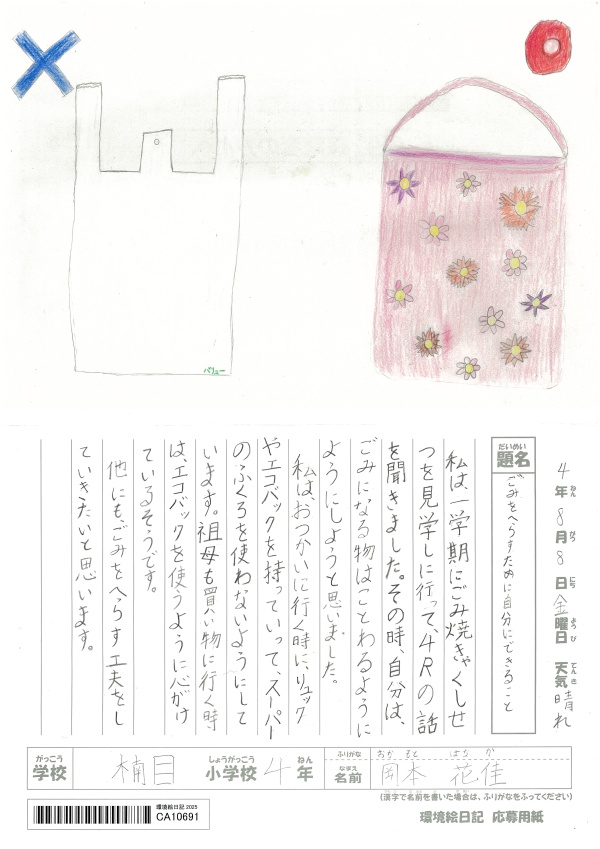 バリュー
4年8月8日金曜日 天気晴れ
ねん がつ にち ようび てんき
だいめい
題名
ごみをへらすために自分にできること
私は、一学期にごみ焼きゃくしせ
つを見学しに行って、4Rの話
を聞きました。その時、自分は、
ごみになる物はことわるように
ようにしようと思いました。
私は、おつかいに行く時に、リュック
やエコバックを持っていって、スーパー
のふくろを使わないようにして
います。祖母も買い物に行く時
は、エコバックを使うように心がけ
ているそうです。
他にも、ごみをへらす工夫をし
ていきたいと思います。
がっこう
学校
楠目
しょうがっこう
小学校
4
ねん
年
ふりがな
おか もと はな か
なまえ
名前
岡本 花佳
(漢字で名前を書いた場合は、ふりがなをふってください)
環境絵日記2025
CA10691
環境絵日記 応募用紙